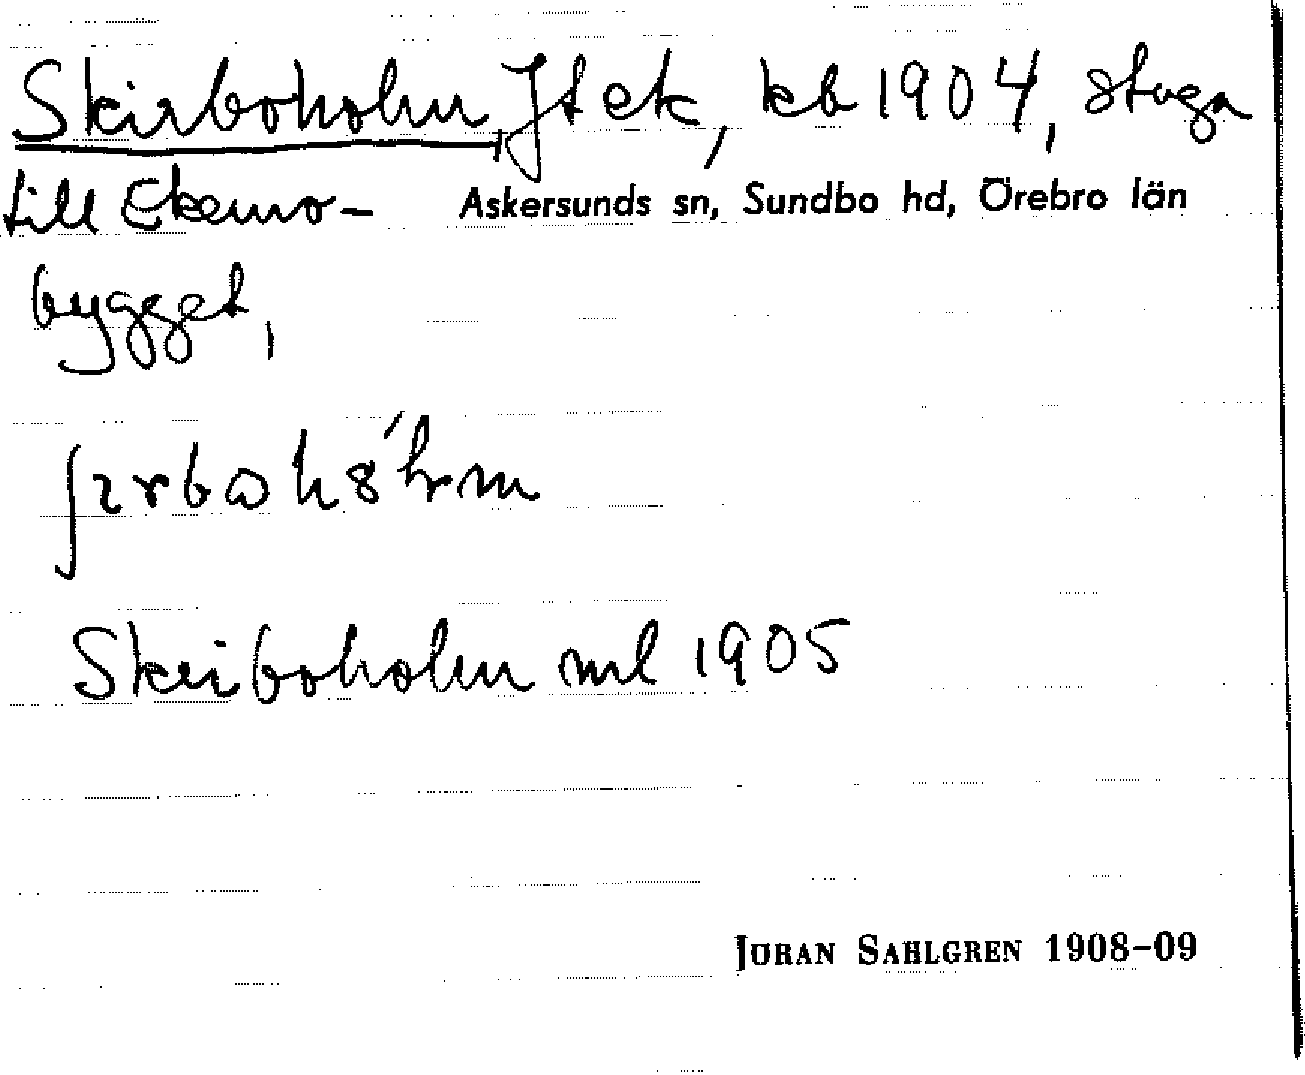 Skirboholm, Jt ek, kb 1904, stuga
till Ekemo- Askersunds sn, Sundbo hd, Örebro län
bygget,
Skirboholm ml 1905
JÖRAN SAHLGREN 1908–09